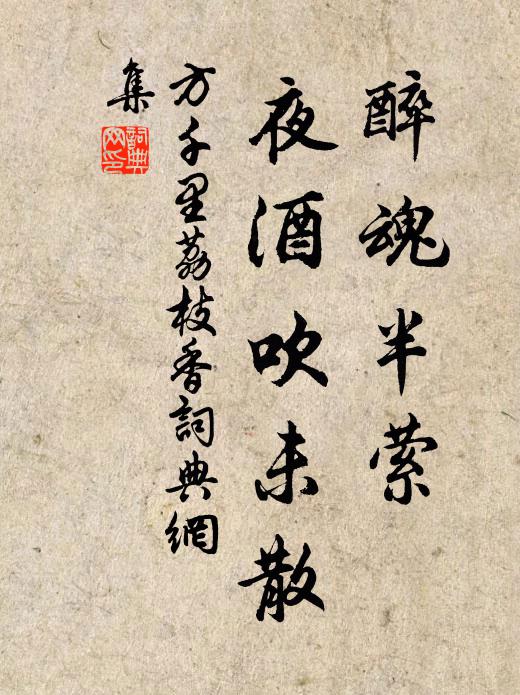 醉魂半萦
夜酒吹未散
方千里荔枝香詞典網
集
詞典
网印